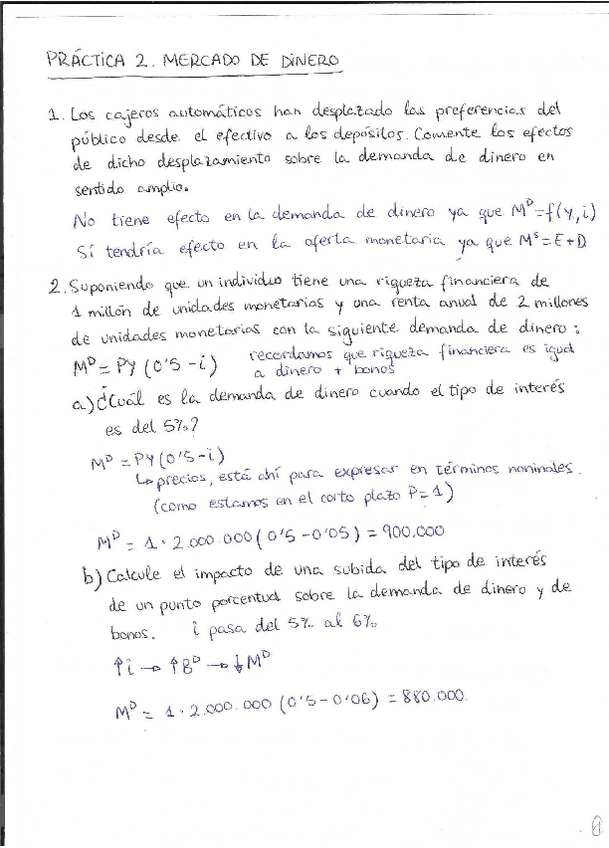 PRÁCTICA 2. MERCADO DE DINERO
1. Los cajeros automáticos han desplazado las preferencias del
público desde el efectivo a los depósitos. Comente los efectos
de dicho desplazamiento sobre la demanda de dinero en
sentido amplio.
No tiene efecto en la demanda de dinero ya que Mᴰ=f(Y,i)
Sí tendría efecto en la oferta monetaria ya que Mˢ=E+D
2. Suponiendo que un individuo tiene una riqueza financiera de
1 millón de unidades monetarias y una renta anual de 2 millones
de unidades monetarias con la siguiente demanda de dinero:
Mᴰ= PY (0'5 -i) recordamos que riqueza financiera es igual
a dinero + bonos
a) ¿Cuál es la demanda de dinero cuando el tipo de interés
es del 5%?
Mᴰ = PY (0'5-i)
↳ precios, está ahí para expresar en términos nominales.
(como estamos en el corto plazo P=1)
Mᴰ = 1 · 2.000.000 (0'5 -0'05) = 900.000
b) Calcule el impacto de una subida del tipo de interés
de un punto porcentual sobre la demanda de dinero y de
bonos. i pasa del 5% al 6%
↑i → ↑Bᴰ → ↓Mᴰ
Mᴰ = 1 · 2.000.000 (0'5-0'06) = 880.000.